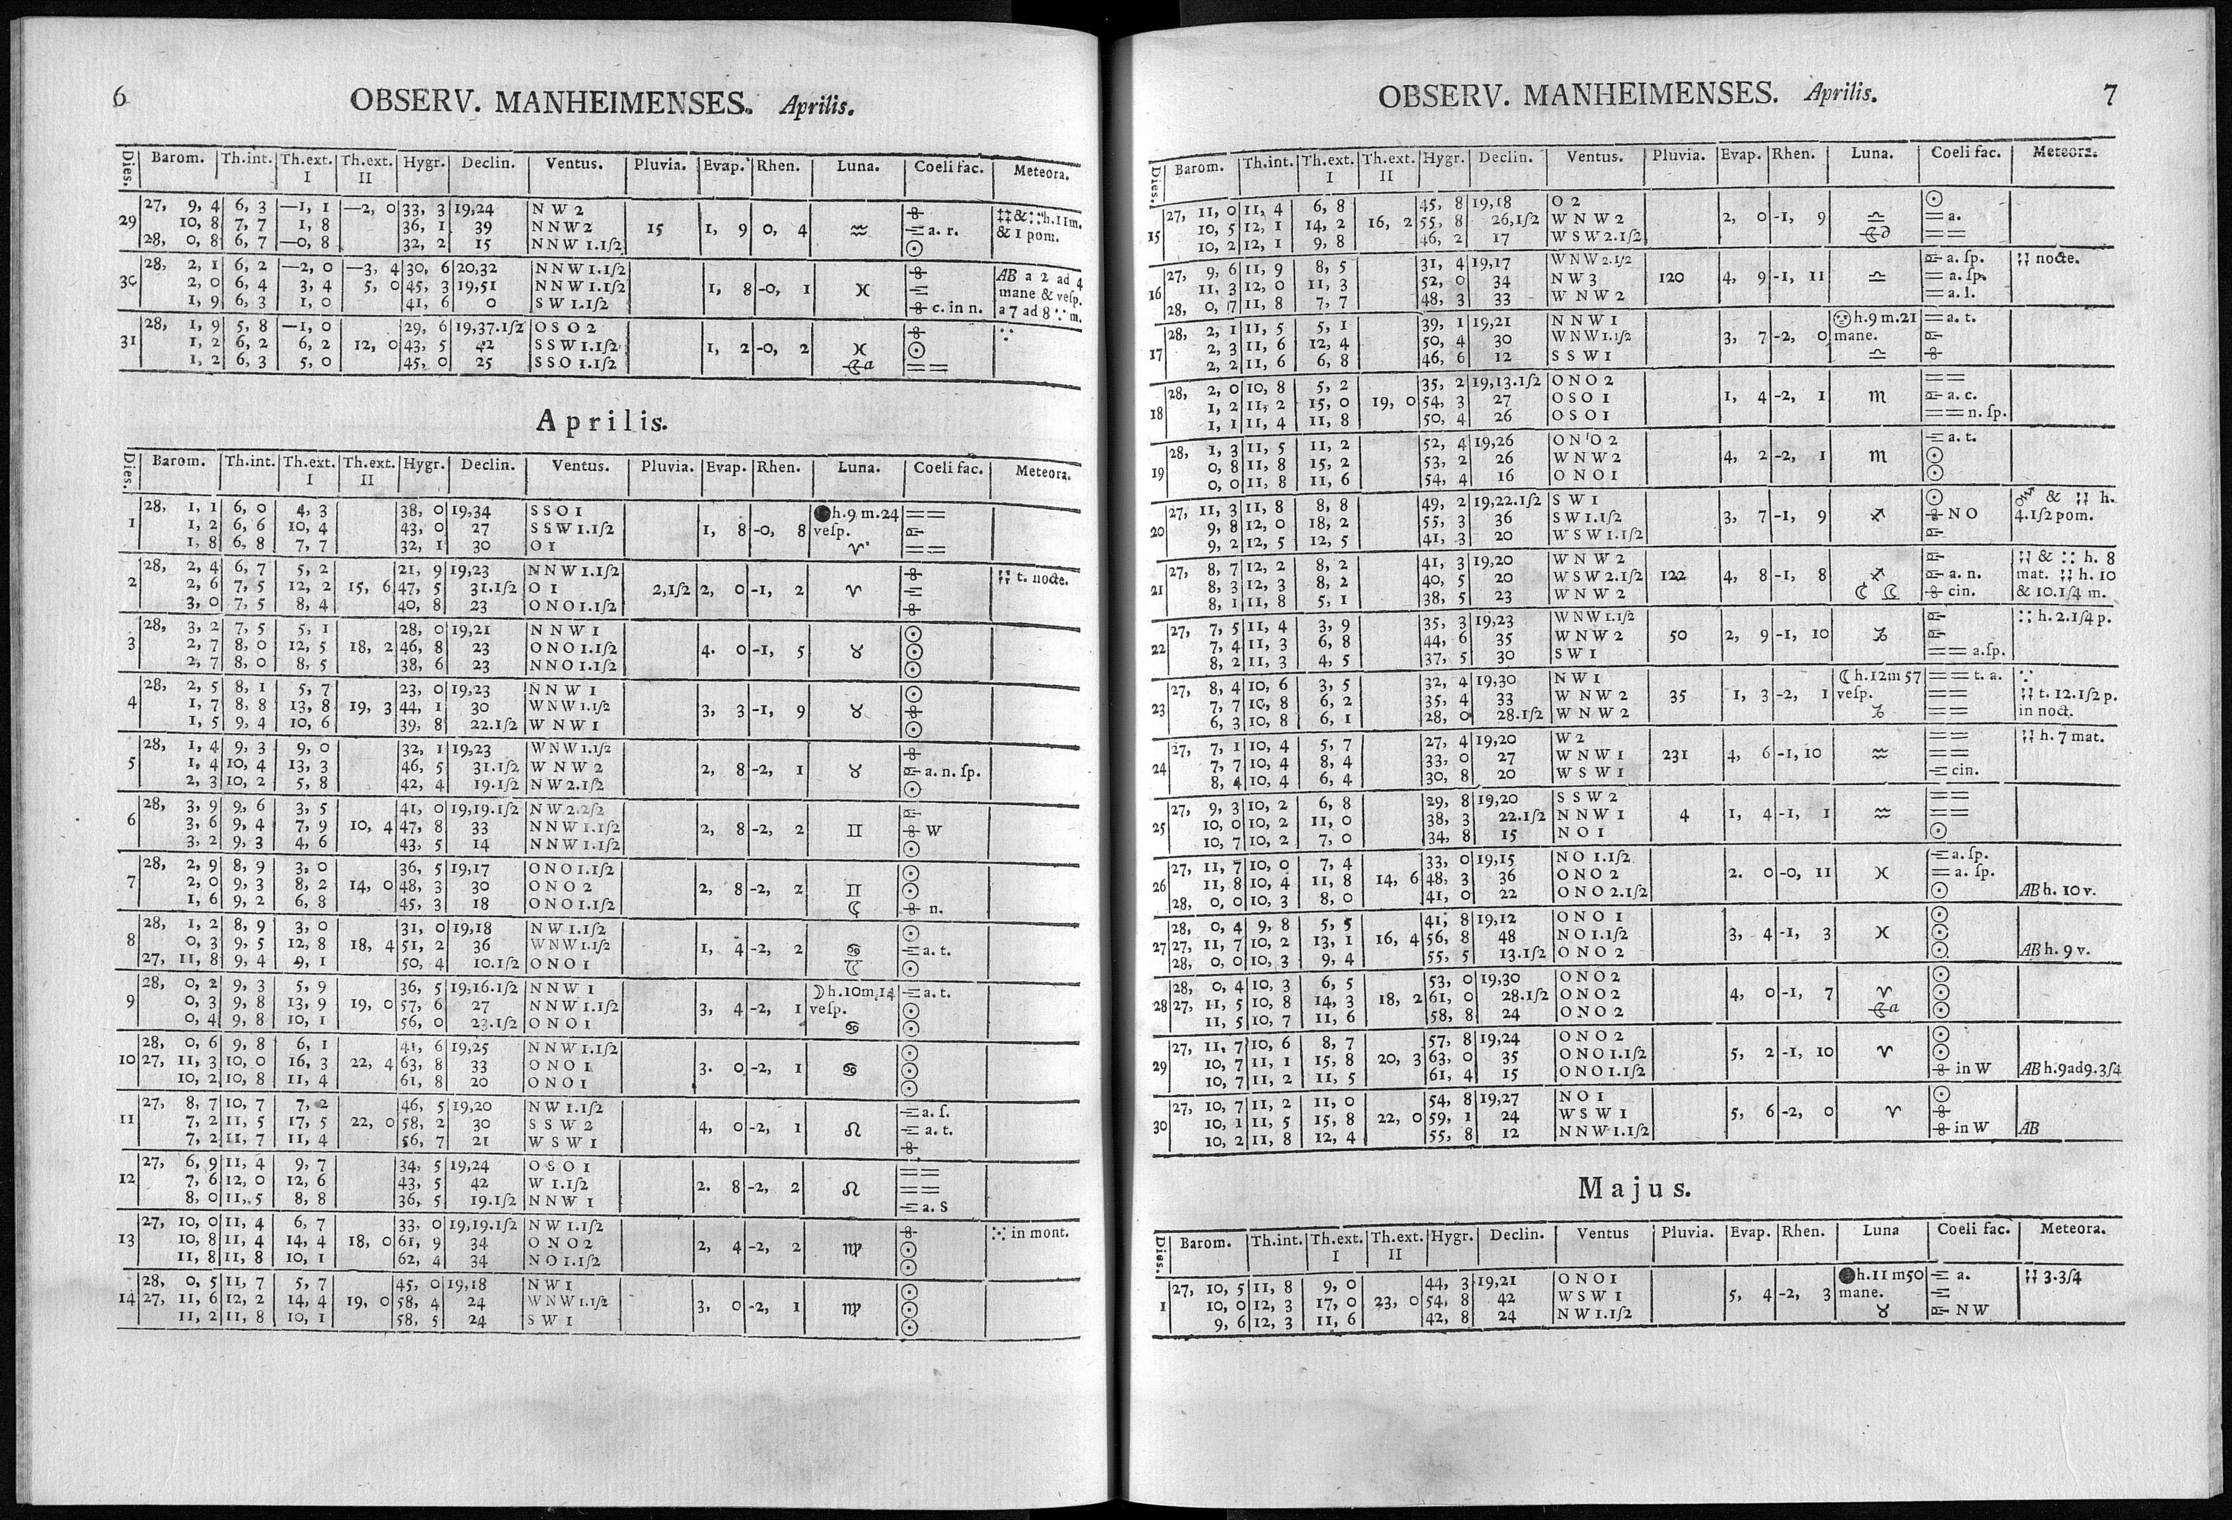 6
OBSERV. MANHEIMENSES. Aprilis.
Dies. Barom. Th.int. Th.ext. I Th.ext. II Hygr. Declin. Ventus. Pluvia. Evap. Rhen. Luna. Coeli fac. Meteora.
27, 9, 4 6, 3 —1, 1 —2, 0 33, 3 19,24 N W 2 ⁝⁝&∷h.11m.
29 10, 8 7, 7 1, 8 36, 1 39 N N W 2 15 1, 9 0, 4 ♒ a. r. & 1 pom.
28, 0, 8 6, 7 —0, 8 32, 2 15 N N W 1.1ſ2 ☉
28, 2, 1 6, 2 —2, 0 —3, 4 30, 6 20,32 N N W 1.1ſ2 AB a 2 ad 4
30 2, 0 6, 4 3, 4 5, 0 45, 3 19,51 N N W 1.1ſ2 1, 8 -0, 1 ♓ mane & veſp.
1, 9 6, 3 1, 0 41, 6 0 S W 1.1ſ2 c. in n. a 7 ad 8 ∵ m.
28, 1, 9 5, 8 —1, 0 29, 6 19,37.1ſ2 O S O 2 ∵
31 1, 2 6, 2 6, 2 12, 0 43, 5 42 S S W 1.1ſ2 1, 2 -0, 2 ♓ ☉
1, 2 6, 3 5, 0 45, 0 25 S S O 1.1ſ2 a ==
Aprilis.
Dies. Barom. Th.int. Th.ext. I Th.ext. II Hygr. Declin. Ventus. Pluvia. Evap. Rhen. Luna. Coeli fac. Meteora.
28, 1, 1 6, 0 4, 3 38, 0 19,34 S S O 1 ●h.9 m.24 ==
1 1, 2 6, 6 10, 4 43, 0 27 S S W 1.1ſ2 1, 8 -0, 8 veſp.
1, 8 6, 8 7, 7 32, 1 30 O 1 ♈ ==
28, 2, 4 6, 7 5, 2 21, 9 19,23 N N W 1.1ſ2 t. nocte.
2 2, 6 7, 5 12, 2 15, 6 47, 5 31.1ſ2 O 1 2,1ſ2 2, 0 -1, 2 ♈
3, 0 7, 5 8, 4 40, 8 23 O N O 1.1ſ2
28, 3, 2 7, 5 5, 1 28, 0 19,21 N N W 1 ☉
3 2, 7 8, 0 12, 5 18, 2 46, 8 23 O N O 1.1ſ2 4. 0 -1, 5 ♉ ☉
2, 7 8, 0 8, 5 38, 6 23 N N O 1.1ſ2 ☉
28, 2, 5 8, 1 5, 7 23, 0 19,23 N N W 1 ☉
4 1, 7 8, 8 13, 8 19, 3 44, 1 30 W N W 1.1ſ2 3, 3 -1, 9 ♉
1, 5 9, 4 10, 6 39, 8 22.1ſ2 W N W 1 ☉
28, 1, 4 9, 3 9, 0 32, 1 19,23 W N W 1.1ſ2
5 1, 4 10, 4 13, 3 46, 5 31.1ſ2 W N W 2 2, 8 -2, 1 ♉ a. n. ſp.
2, 3 10, 2 5, 8 42, 4 19.1ſ2 N W 2.1ſ2 ☉
28, 3, 9 9, 6 3, 5 41, 0 19,19.1ſ2 N W 2.2ſ2
6 3, 6 9, 4 7, 9 10, 4 47, 8 33 N N W 1.1ſ2 2, 8 -2, 2 ♊ W
3, 2 9, 3 4, 6 43, 5 14 N N W 1.1ſ2 ☉
28, 2, 9 8, 9 3, 0 36, 5 19,17 O N O 1.1ſ2 ☉
7 2, 0 9, 3 8, 2 14, 0 48, 3 30 O N O 2 2, 8 -2, 2 ♊ ☉
1, 6 9, 2 6, 8 45, 3 18 O N O 1.1ſ2 n.
28, 1, 2 8, 9 3, 0 31, 0 19,18 N W 1.1ſ2 ☉
8 0, 3 9, 5 12, 8 18, 4 51, 2 36 W N W 1.1ſ2 1, 4 -2, 2 ♋ a. t.
27, 11, 8 9, 4 9, 1 50, 4 10.1ſ2 O N O 1 ☉
28, 0, 2 9, 3 5, 9 36, 5 19,16.1ſ2 N N W 1 ☽h.10m.14 a. t.
9 0, 3 9, 8 13, 9 19, 0 57, 6 27 N N W 1.1ſ2 3, 4 -2, 1 veſp. ☉
0, 4 9, 8 10, 1 56, 0 23.1ſ2 O N O 1 ♋ ☉
28, 0, 6 9, 8 6, 1 41, 6 19,25 N N W 1.1ſ2 ☉
10 27, 11, 3 10, 0 16, 3 22, 4 63, 8 33 O N O 1 3. 0 -2, 1 ♋ ☉
10, 2 10, 8 11, 4 61, 8 20 O N O 1 ☉
27, 8, 7 10, 7 7, 2 46, 5 19,20 N W 1.1ſ2 a. ſ.
11 7, 2 11, 5 17, 5 22, 0 58, 2 30 S S W 2 4, 0 -2, 1 ♌ a. t.
7, 2 11, 7 11, 4 56, 7 21 W S W 1
27, 6, 9 11, 4 9, 7 34, 5 19,24 O S O 1 ==
12 7, 6 12, 0 12, 6 43, 5 42 W 1.1ſ2 2. 8 -2, 2 ♌ ==
8, 0 11, 5 8, 8 36, 5 19.1ſ2 N N W 1 a. S
27, 10, 0 11, 4 6, 7 33, 0 19,19.1ſ2 N W 1.1ſ2 in mont.
13 10, 8 11, 4 14, 4 18, 0 61, 9 34 O N O 2 2, 4 -2, 2 ♍ ☉
11, 8 11, 8 10, 1 62, 4 34 N O 1.1ſ2 ☉
28, 0, 5 11, 7 5, 7 45, 0 19,18 N W 1 ☉
14 27, 11, 6 12, 2 14, 4 19, 0 58, 4 24 W N W 1.1ſ2 3, 0 -2, 1 ♍ ☉
11, 2 11, 8 10, 1 58, 5 24 S W 1 ☉
OBSERV. MANHEIMENSES. Aprilis.
7
Dies. Barom. Th.int. Th.ext. I Th.ext. II Hygr. Declin. Ventus. Pluvia. Evap. Rhen. Luna. Coeli fac. Meteora.
27, 11, 0 11, 4 6, 8 45, 8 19,18 O 2 ☉
15 10, 5 12, 1 14, 2 16, 2 55, 8 26,1ſ2 W N W 2 2, 0 -1, 9 ♎ = a.
10, 2 12, 1 9, 8 46, 2 17 W S W 2.1ſ2 ==
27, 9, 6 11, 9 8, 5 31, 4 19,17 W N W 2.1ſ2 a. ſp. nocte.
16 11, 3 12, 0 11, 3 52, 0 34 N W 3 120 4, 9 -1, 11 ♎ = a. ſp.
28, 0, 7 11, 8 7, 7 48, 3 33 W N W 2 = a. l.
28, 2, 1 11, 5 5, 1 39, 1 19,21 N N W 1 h.9 m.21 = a. t.
17 2, 3 11, 6 12, 4 50, 4 30 W N W 1.1ſ2 3, 7 -2, 0 mane.
2, 2 11, 6 6, 8 46, 6 12 S S W 1 ♎
28, 2, 0 10, 8 5, 2 35, 2 19,13.1ſ2 O N O 2 ==
18 1, 2 11, 2 15, 0 19, 0 54, 3 27 O S O 1 1, 4 -2, 1 ♏ a. c.
1, 1 11, 4 11, 8 50, 4 26 O S O 1 == n. ſp.
28, 1, 3 11, 5 11, 2 52, 4 19,26 O N O 2 a. t.
19 0, 8 11, 8 15, 2 53, 2 26 W N W 2 4, 2 -2, 1 ♏ ☉
0, 0 11, 8 11, 6 54, 4 16 O N O 1 ☉
27, 11, 3 11, 8 8, 8 49, 2 19,22.1ſ2 S W 1 ☉ & h.
20 9, 8 12, 0 18, 2 55, 3 36 S W 1.1ſ2 3, 7 -1, 9 ♐ N O 4.1ſ2 pom.
9, 2 12, 5 12, 5 41, 3 20 W S W 1.1ſ2
27, 8, 7 12, 2 8, 2 41, 3 19,20 W N W 2 & ∷ h. 8
21 8, 3 12, 3 8, 2 40, 5 20 W S W 2.1ſ2 122 4, 8 -1, 8 ♐ a. n. mat. h. 10
8, 1 11, 8 5, 1 38, 5 23 W N W 2 cin. & 10.1ſ4 m.
27, 7, 5 11, 4 3, 9 35, 3 19,23 W N W 1.1ſ2 ∷ h. 2.1ſ4 p.
22 7, 4 11, 3 6, 8 44, 6 35 W N W 2 50 2, 9 -1, 10 ♑
8, 2 11, 3 4, 5 37, 5 30 S W 1 == a.ſp.
27, 8, 4 10, 6 3, 5 32, 4 19,30 N W 1 ☾h.12m 57 == t. a. ∵
23 7, 7 10, 8 6, 2 35, 4 33 W N W 2 35 1, 3 -2, 1 veſp. == t. 12.1ſ2 p.
6, 3 10, 8 6, 1 28, 0 28.1ſ2 W N W 2 ♑ == in noct.
27, 7, 1 10, 4 5, 7 27, 4 19,20 W 2 == h. 7 mat.
24 7, 7 10, 4 8, 4 33, 0 27 W N W 1 231 4, 6 -1, 10 ♒ ==
8, 4 10, 4 6, 4 30, 8 20 W S W 1 cin.
27, 9, 3 10, 2 6, 8 29, 8 19,20 S S W 2 ==
25 10, 0 10, 2 11, 0 38, 3 22.1ſ2 N N W 1 4 1, 4 -1, 1 ♒ ==
10, 7 10, 2 7, 0 34, 8 15 N O 1 ☉
27, 11, 7 10, 0 7, 4 33, 0 19,15 N O 1.1ſ2 a. ſp.
26 11, 8 10, 4 11, 8 14, 6 48, 3 36 O N O 2 2. 0 -0, 11 ♓ = a. ſp.
28, 0, 0 10, 3 8, 0 41, 0 22 O N O 2.1ſ2 ☉ AB h. 10 v.
28, 0, 4 9, 8 5, 5 41, 8 19,12 O N O 1 ☉
27 27, 11, 7 10, 2 13, 1 16, 4 56, 8 48 N O 1.1ſ2 3, 4 -1, 3 ♓ ☉
28, 0, 0 10, 3 9, 4 55, 5 13.1ſ2 O N O 2 ☉ AB h. 9 v.
28, 0, 4 10, 3 6, 5 53, 0 19,30 O N O 2 ☉
28 27, 11, 5 10, 8 14, 3 18, 2 61, 0 28.1ſ2 O N O 2 4, 0 -1, 7 ♈ ☉
11, 5 10, 7 11, 6 58, 8 24 O N O 2 a ☉
27, 11, 7 10, 6 8, 7 57, 8 19,24 O N O 2 ☉
29 10, 7 11, 1 15, 8 20, 3 63, 0 35 O N O 1.1ſ2 5, 2 -1, 10 ♈ ☉
10, 7 11, 2 11, 5 61, 4 15 O N O 1.1ſ2 in W AB h.9ad9.3ſ4
27, 10, 7 11, 2 11, 0 54, 8 19,27 N O 1 ☉
30 10, 1 11, 5 15, 8 22, 0 59, 1 24 W S W 1 5, 6 -2, 0 ♈
10, 2 11, 8 12, 4 55, 8 12 N N W 1.1ſ2 in W AB
Majus.
Dies. Barom. Th.int. Th.ext. I Th.ext. II Hygr. Declin. Ventus Pluvia. Evap. Rhen. Luna Coeli fac. Meteora.
27, 10, 5 11, 8 9, 0 44, 3 19,21 O N O 1 ●h.11 m50 a. 3.3ſ4
1 10, 0 12, 3 17, 0 23, 0 54, 8 42 W S W 1 5, 4 -2, 3 mane.
9, 6 12, 3 11, 6 42, 8 24 N W 1.1ſ2 ♉ N W